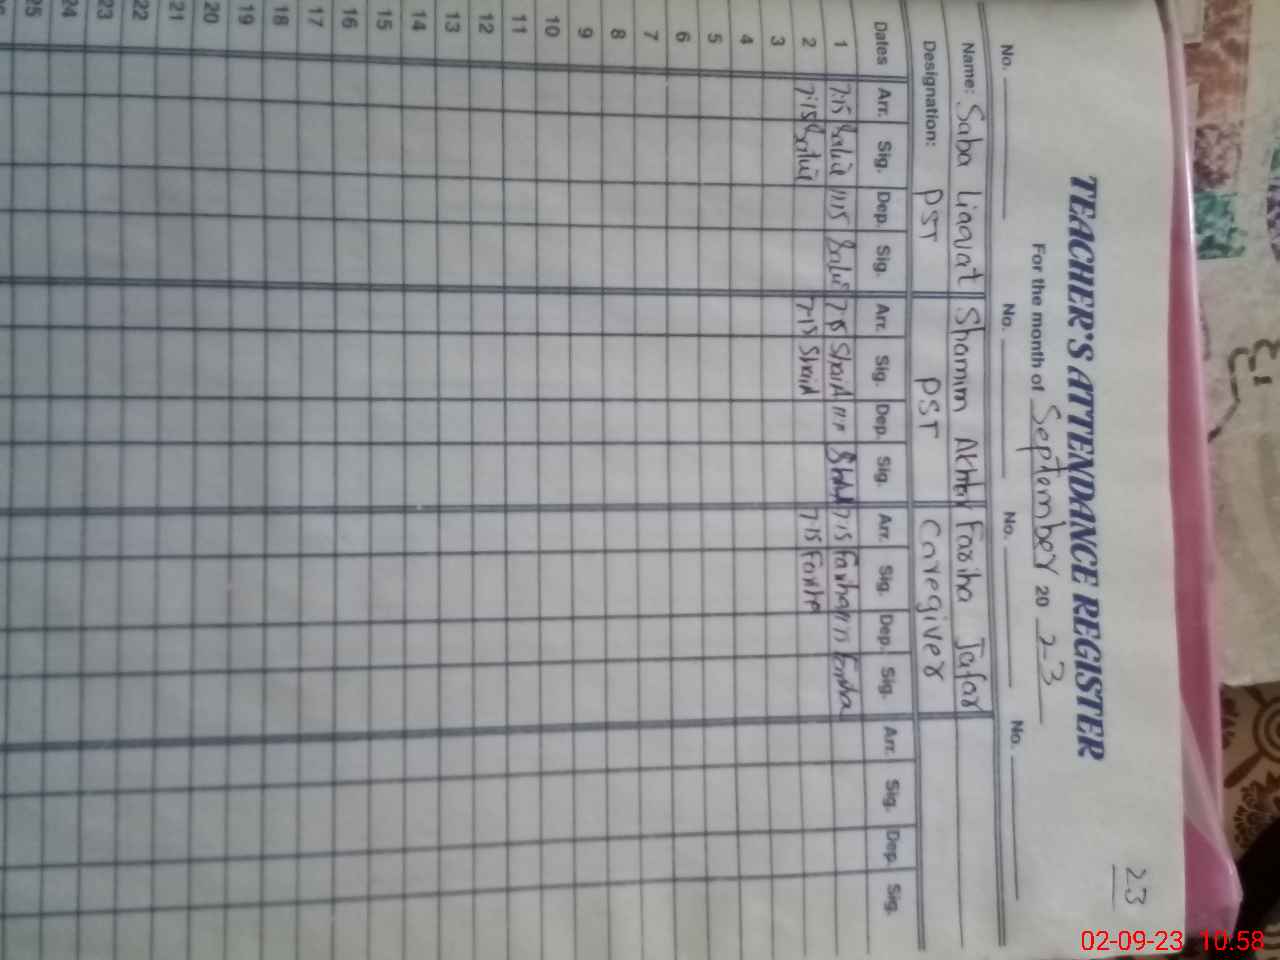 23
TEACHER'S ATTENDANCE REGISTER
For the month of September 20 23
No. No. No. No.
Name: Saba Liaqvat Shamim Akhtar Fariha Jafar
Designation: PST PST Caregiver
Dates Arr. Sig. Dep. Sig. Arr. Sig. Dep. Sig. Arr. Sig. Dep. Sig. Arr. Sig. Dep. Sig.
1 7:15 11:15 7:15 Fariha
2 7:15 7-15 7:15
3
4
5
6
7
8
9
10
11
12
13
14
15
16
17
18
19
20
21
22
23
24
25
02-09-23 10:58